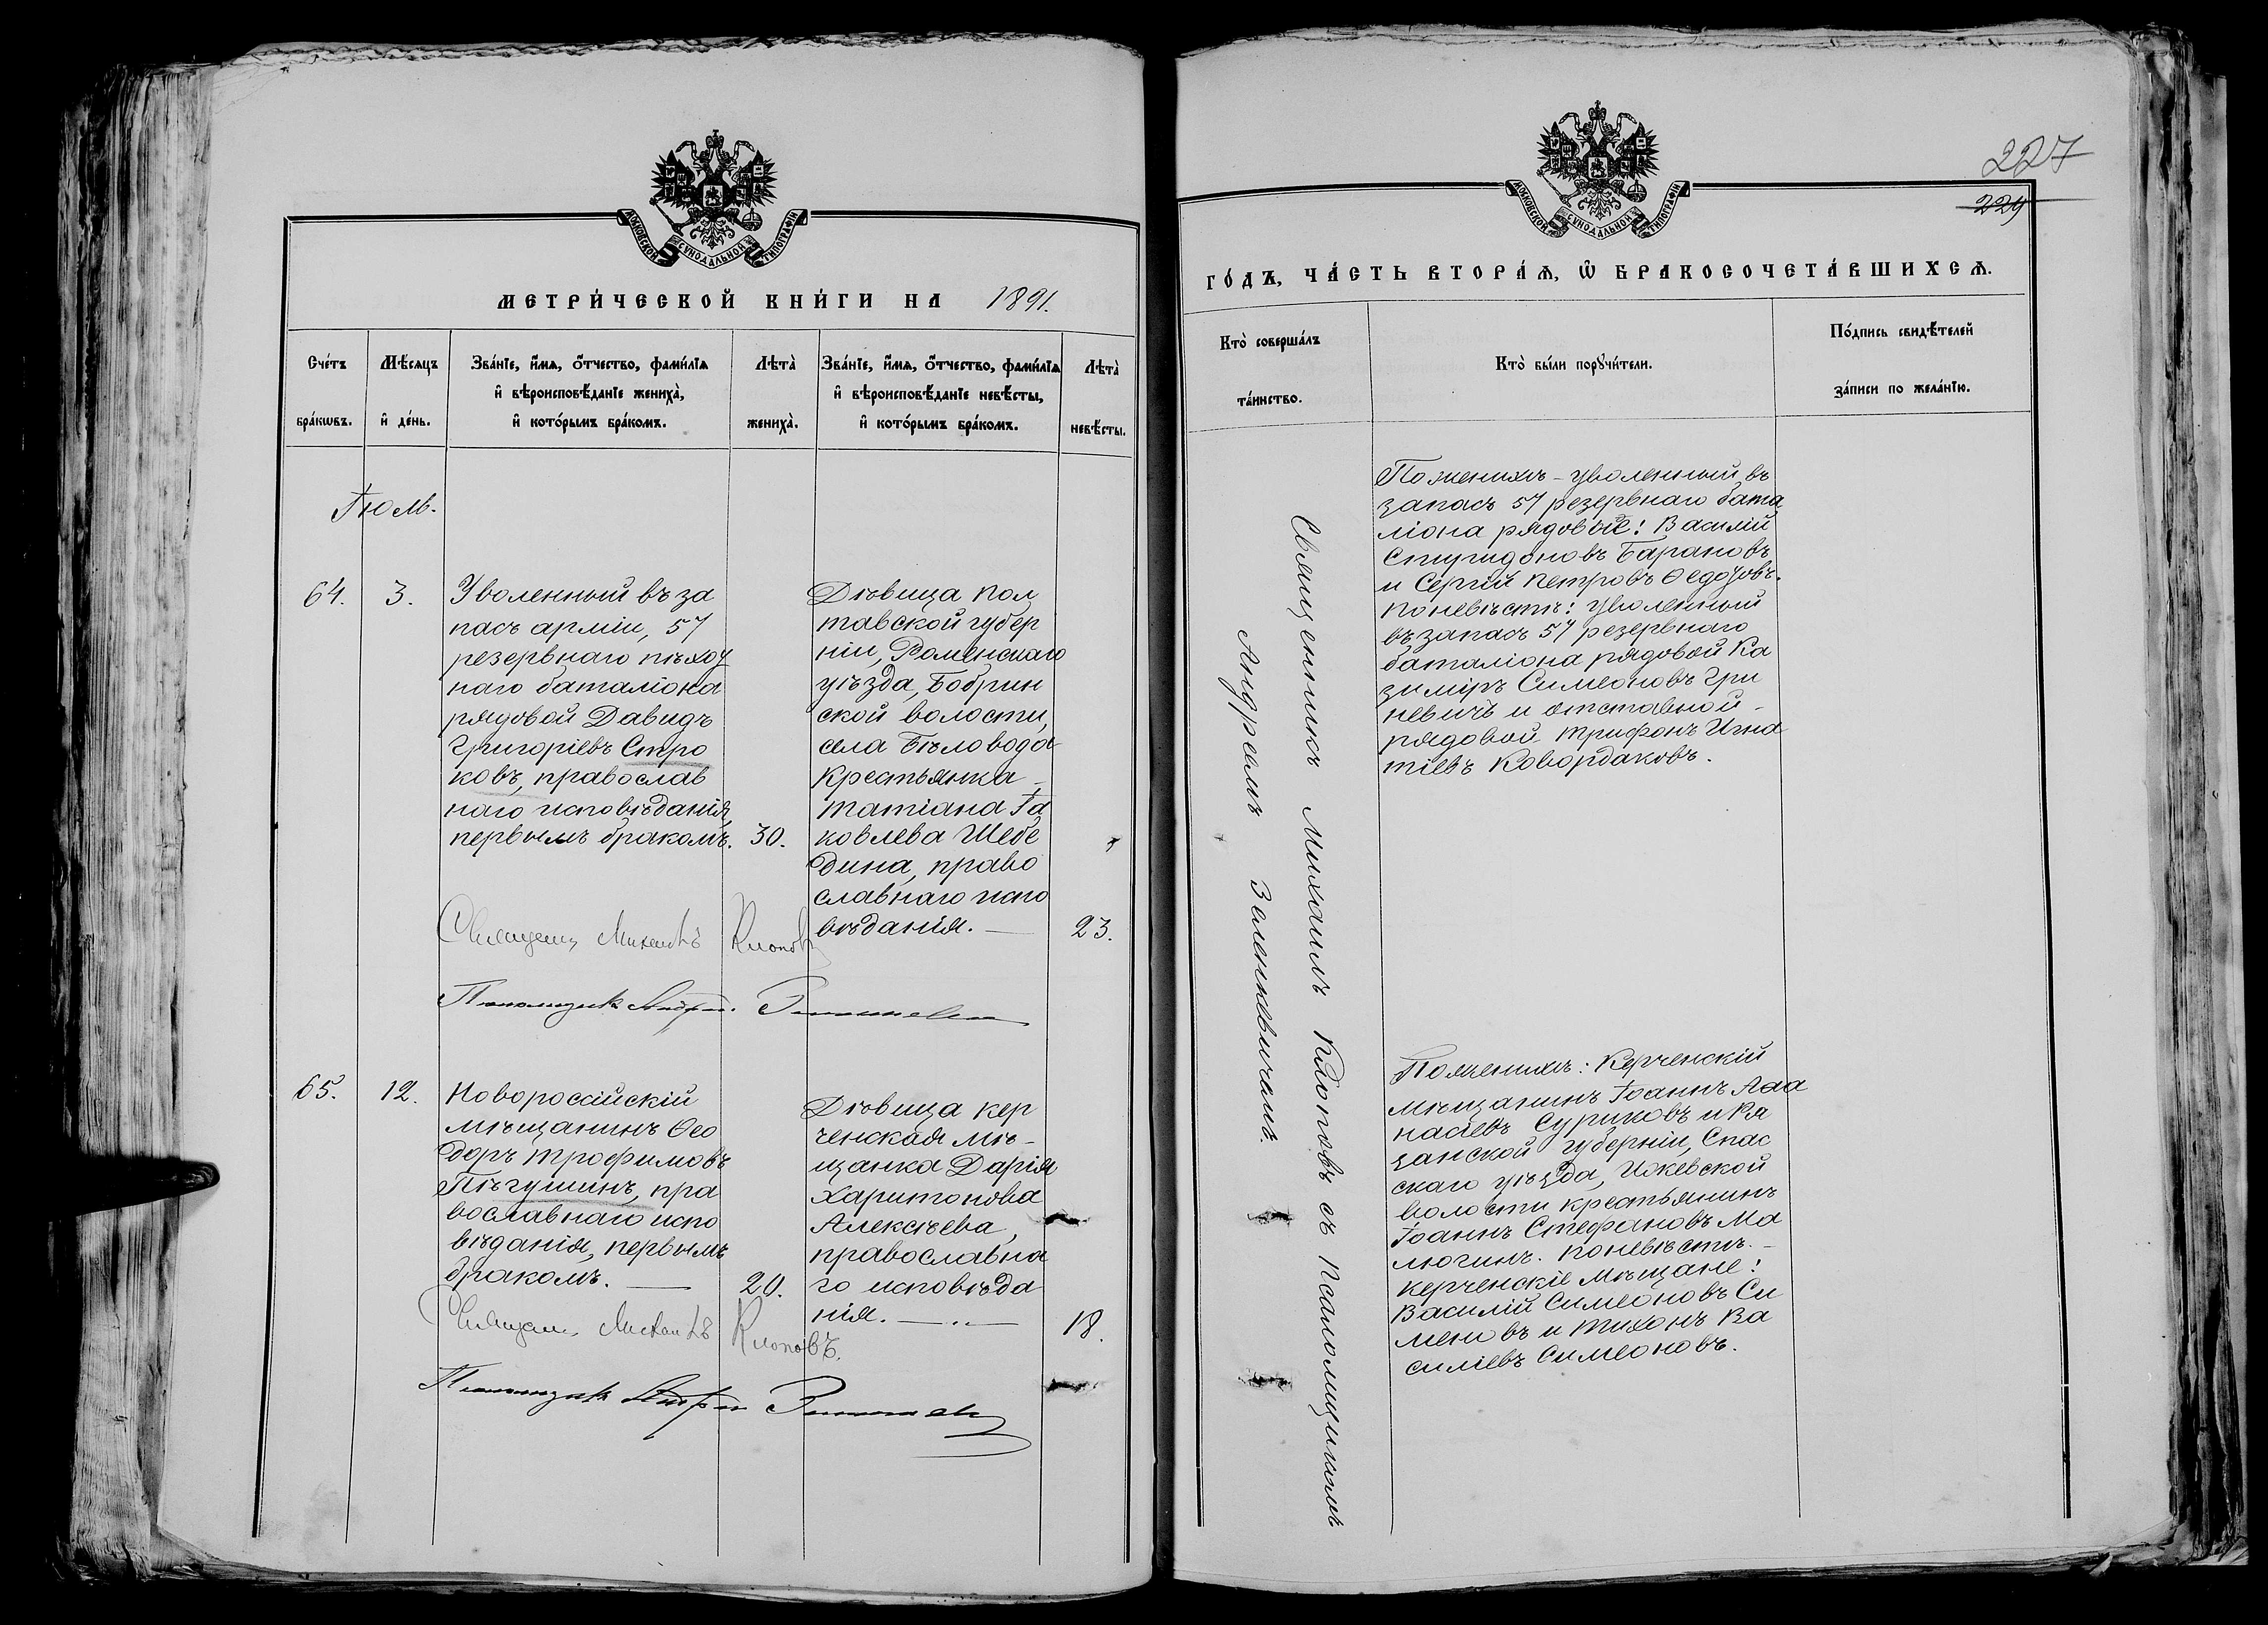 МОСКОВСКОЙ СУНОДАЛЬНОЙ ТИПОГРАФІИ
МЕТРИ́ЧЕСКОЙ КНИ́ГИ НА 1891.
Сче́тъ бра́кѡвъ.
Мѣ́сяцъ и҆ де́нь.
Зва́нїе, и҆́мѧ, ѻ҆́тчество, фами́лїѧ
и҆ вѣроисповѣ́данїе жениха̀,
и҆ кото́рымъ бра́комъ.
Лѣта̀ жениха̀.
Зва́нїе, и҆́мѧ, ѻ҆́тчество, фами́лїѧ
и҆ вѣроисповѣ́данїе невѣ́сты,
и҆ кото́рымъ бра́комъ.
Лѣта̀ невѣ́сты.
Іюль.
64.
3.
Уволенный въ за
пасъ арміи, 57
резервнаго пѣхот
наго баталіона
рядовой Давидъ
Григоріевъ Стро
ковъ, православ
наго исповѣданія,
первымъ бракомъ.
30.
Дѣвица Пол
тавской губер
ніи, Роменскаго
уѣзда, Бобрин
ской волости,
села Бѣловода
крестьянка
Татіана Іа
ковлева Шебе
дина, право
славнаго испо
вѣданія.
23.
Священ. Михаилъ Клоповъ
Псаломщикъ Андрей
65.
12.
Новороссійскій
мѣщанинъ Ѳео
доръ Трофимовъ
Пѣгушинъ, пра
вославнаго испо
вѣданія, первымъ
бракомъ.
20.
Дѣвица кер
ченская мѣ-
щанка Дарія
Харитонова
Алексѣева,
православна
го исповѣда
нія.
18.
Священ. Михаилъ Клоповъ.
Псаломщикъ Андрей
227
229
МОСКОВСКОЙ СУНОДАЛЬНОЙ ТИПОГРАФІИ
ГО́ДЪ, ЧА́СТЬ ВТОРА́Ѧ, Ѽ БРАКОСОЧЕТА́ВШИХСѦ.
Кто̀ соверша́лъ
та́инство.
Кто̀ бы́ли порꙋчи́тели.
По́дпись свидѣ́телей
за́писи по жела́нїю.
Священникъ Михаилъ Клоповъ съ псаломщикомъ
Андреемъ Зеленкевичемъ.
По женихѣ - уволенный въ
запасъ 57 резервнаго бата
ліона рядовые: Василій
Спиридоновъ Барановъ
и Сергій Петровъ Ѳедозовъ.
По невѣстѣ: уволенный
въ запасъ 57 резервнаго
баталіона рядовой Ка
зиміръ Симеоновъ Гри
невичъ и отставной -
рядовой Трифонъ Игна
тіевъ Ковордаковъ.
По женихѣ: Керченскій
мѣщанинъ Іоаннъ Аѳа
насіевъ Суриковъ и Ря
занской губерніи, Спас
скаго уѣзда, Ижевской
волости крестьянинъ
Іоаннъ Стефановъ Ма
лючинъ. По невѣстѣ. -
керченскіе мѣщане:
Василій Симеоновъ Си
меновъ и Тихонъ Ва
силіевъ Симеоновъ.